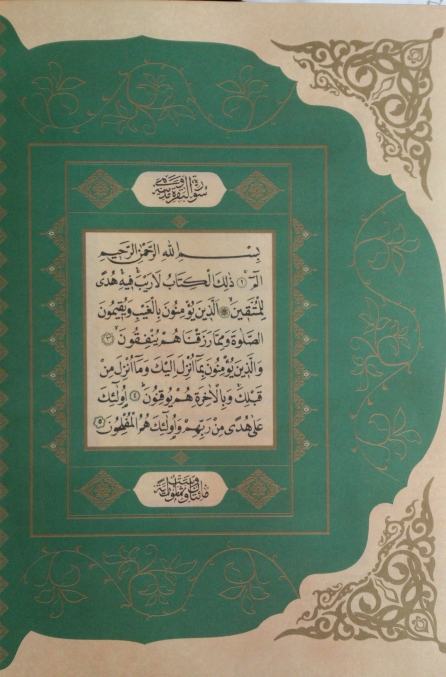 سورة البقرة مدنية
بِسْمِ اللهِ الرَّحْمٰنِ الرَّحِيمِ
الٓمٓ ﴿١﴾ ذٰلِكَ الْكِتَابُ لَا رَيْبَ فِيهِ هُدًى
لِلْمُتَّقِينَ ﴿٢﴾ الَّذِينَ يُؤْمِنُونَ بِالْغَيْبِ وَيُقِيمُونَ
الصَّلٰوةَ وَمِمَّا رَزَقْنَاهُمْ يُنْفِقُونَ ﴿٣﴾
وَالَّذِينَ يُؤْمِنُونَ بِمَا اُنْزِلَ اِلَيْكَ وَمَا اُنْزِلَ مِنْ
قَبْلِكَ وَبِالْاٰخِرَةِ هُمْ يُوقِنُونَ ﴿٤﴾ اُولٰئِكَ
عَلٰى هُدًى مِنْ رَبِّهِمْ وَاُولٰئِكَ هُمُ الْمُفْلِحُونَ ﴿٥﴾